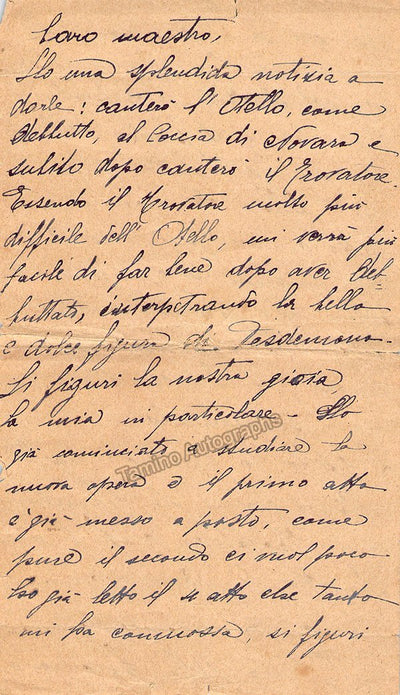 Caro maestro,
Ho una splendida notizia a
darle: canterò l'Otello, come
debbutto, al Coccia di Novara e
subito dopo canterò il Trovatore.
Essendo il Trovatore molto più
difficile dell'Otello, mi verrà più
facile di far bene dopo aver deb=
buttato, interpretando la bella
e dolce figura di Desdemona.
Si figuri la nostra gioia,
la mia in particolare - Ho
già cominciato a studiare la
nuova opera e il primo atto
è già messo a posto, come
pure il secondo ci vuol poco
ho già letto il 4 atto che tanto
mi ha commossa, si figuri
Tamino Autographs